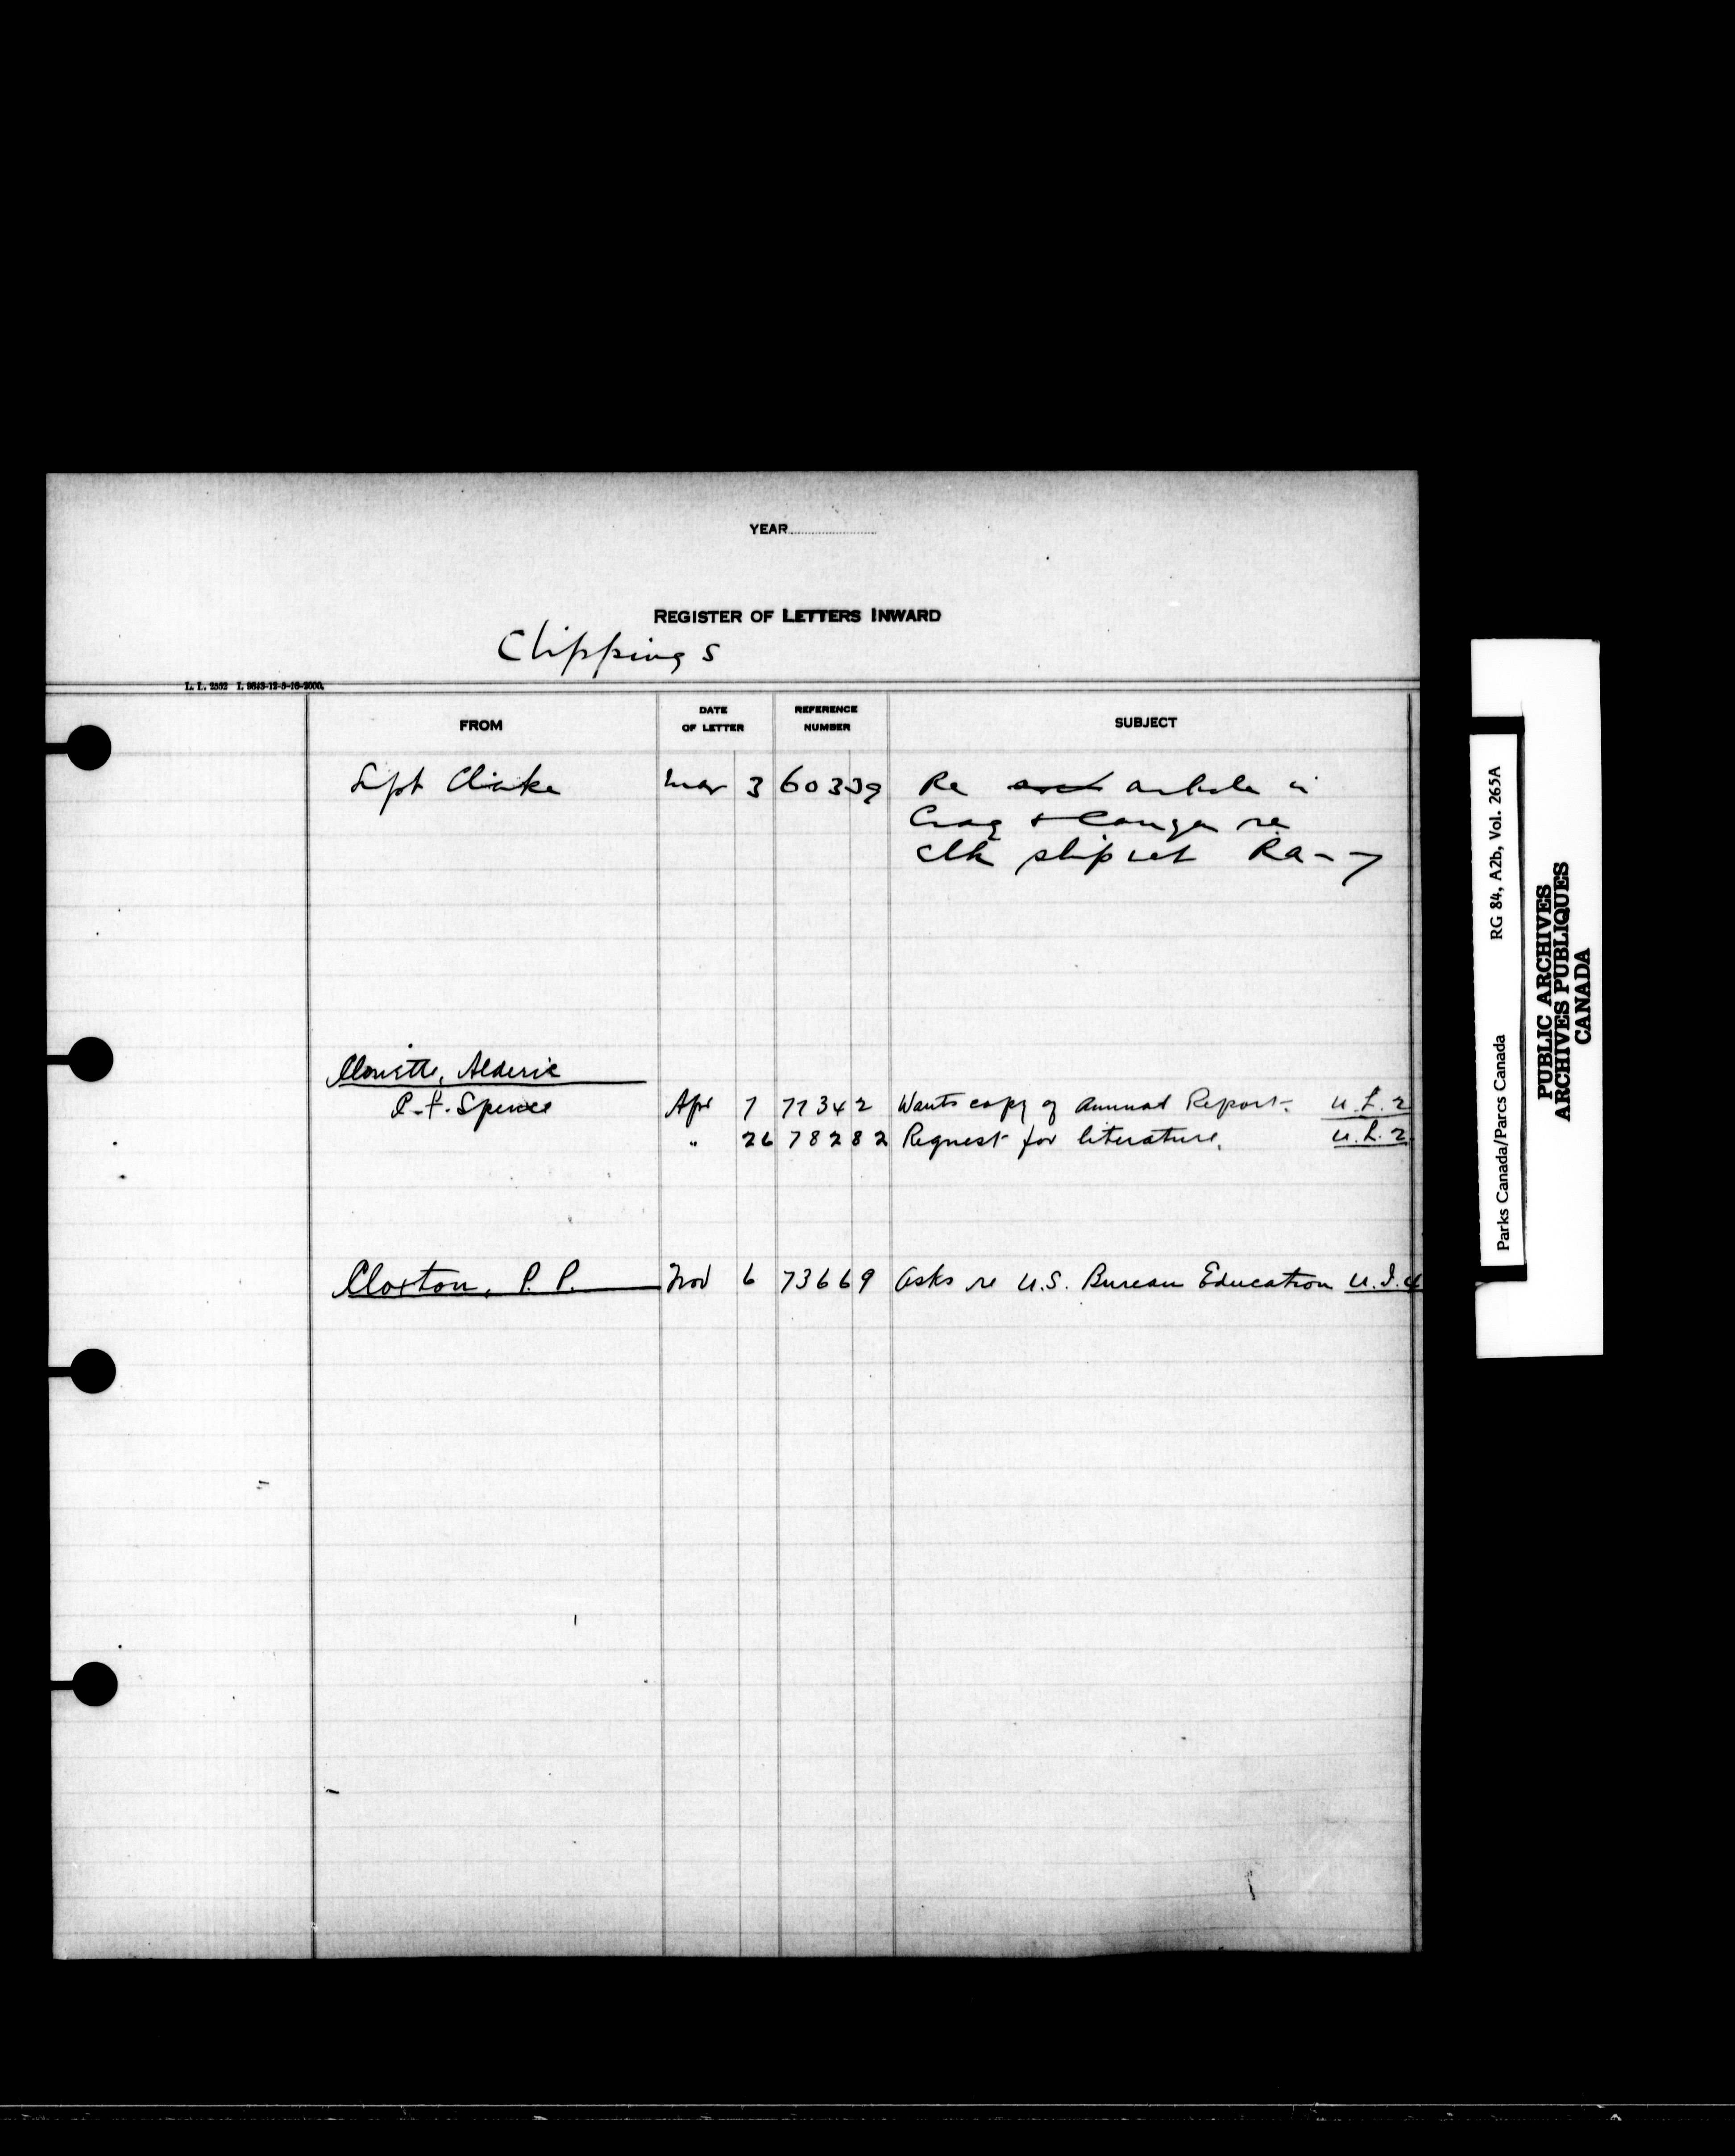 YEAR
REGISTER OF LETTERS INWARD
Clippings
L. L. 2552 I. 9843-12-5-16-2000.
FROM DATE OF LETTER REFERENCE NUMBER SUBJECT
Supt Clarke Mar 3 60339 Re article in
Crag & Canyon re
elk shipment Ra--7
Clouette, Alderic
P. F. Spence Apr 7 77342 Wants copy of Annual Report. U.L.2
" 26 78282 Request for literature. U.L.2
Cloxton, P. P. Nov 6 73669 Asks re U.S. Bureau Education U.I.4
Parks Canada/Parcs Canada RG 84, A2b, Vol. 265A
PUBLIC ARCHIVES
ARCHIVES PUBLIQUES
CANADA